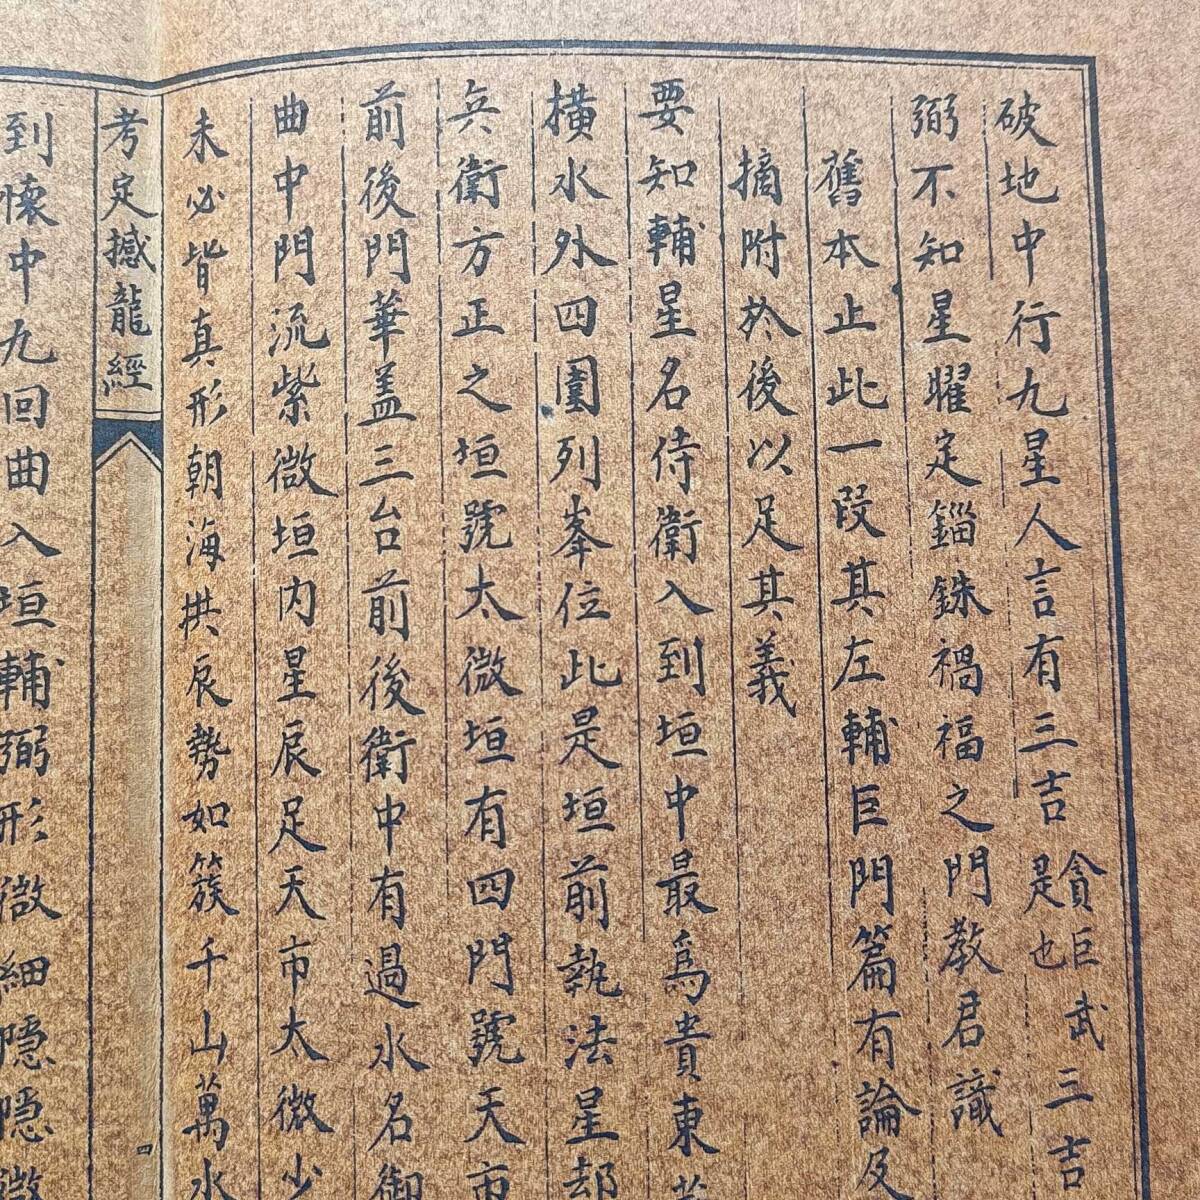 破地中行九星人言有三吉貪巨武是也三吉
弼不知星曜定錙銖禍福之門教君識
舊本止此一段其左輔巨門篇有論及
摘附於後以足其義
要知輔星名侍衛入到垣中最爲貴東
橫水外四圍列峯位此是垣前執法星却
兵衛方正之垣號太微垣有四門號天市
前後門華蓋三台前後衛中有過水名御
曲中門流紫微垣内星辰足天市太微少
未必皆真形朝海拱辰勢如簇千山萬水
考定撼龍經
四
到懷中九回曲入垣輔弼形微細隱隱微